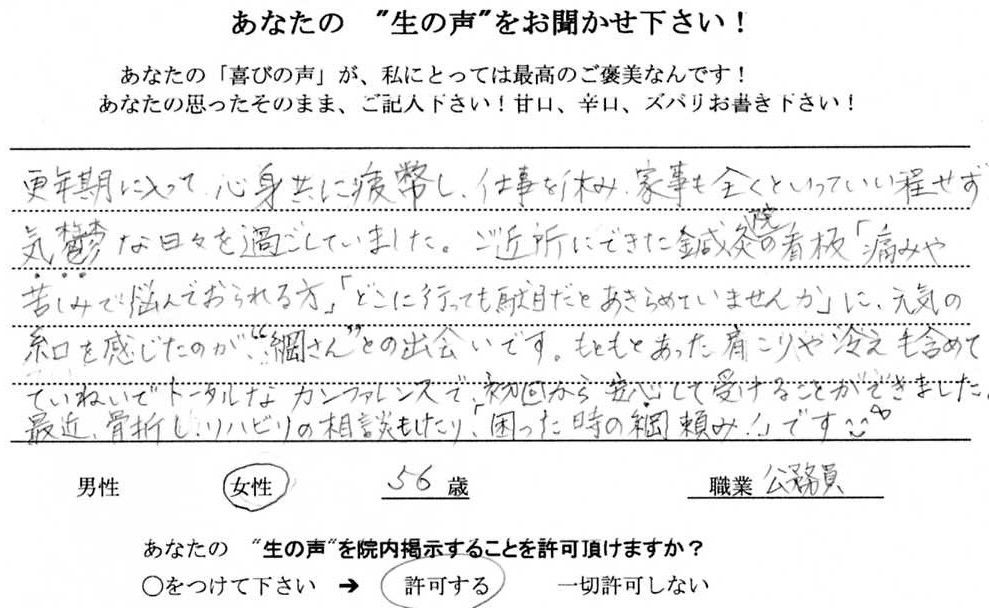 あなたの　"生の声"をお聞かせ下さい！
あなたの「喜びの声」が、私にとっては最高のご褒美なんです！
あなたの思ったそのまま、ご記入下さい！甘口、辛口、ズバリお書き下さい！
更年期に入って、心身共に疲幣し、仕事を休み、家事も全くといっていい程せず
気鬱な日々を過ごしていました。ご近所にできた鍼灸院の看板「痛みや
苦しみで悩んでおられる方」「どこに行っても駄目だとあきらめていませんか」に、元気の
糸口を感じたのが、"綱さん"との出会いです。もともとあった肩こりや冷えも含めて
ていねいでトータルなカンファレンスで、初回から安心して受けることができました。
最近、骨折し、リハビリの相談もしたり、「困った時の綱頼み！」です
男性　女性　56歳　職業 公務員
あなたの　"生の声"を院内掲示することを許可頂けますか？
○をつけて下さい → 許可する　一切許可しない